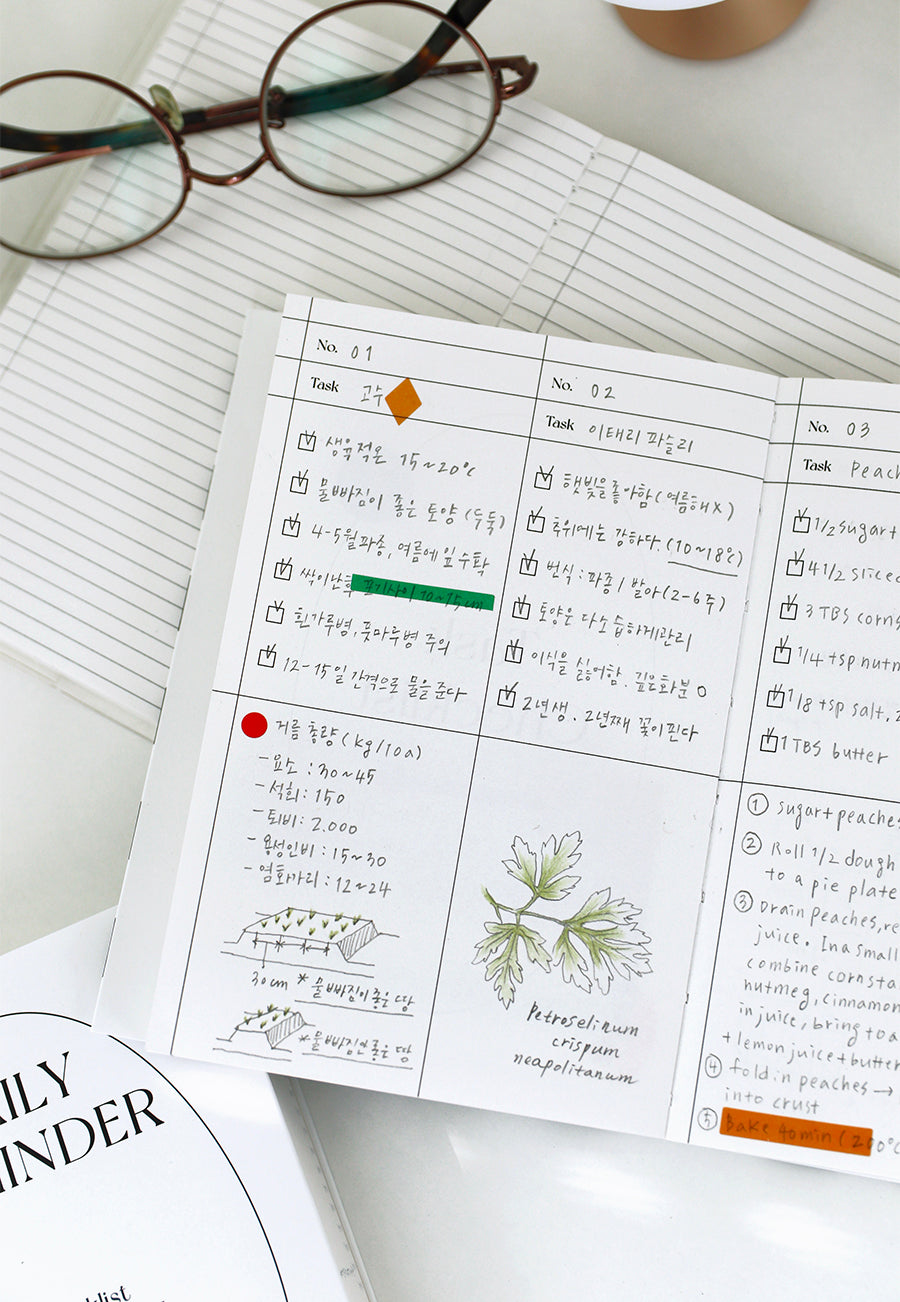 No. 01
Task 고수
생육적온 15~20℃
물빠짐이 좋은 토양 (두둑)
4-5월파종, 여름에 잎수확
싹이난후 포기사이 10~15cm
흰가루병, 풋마루병 주의
12-15일 간격으로 물을준다
거름 총량 (kg/10a)
-요소 : 30~45
-석회 : 150
-퇴비 : 2.000
-용성인비 : 15~30
-염화가리 : 12~24
30cm *물빠짐이좋은 땅
*물빠짐안좋은 땅
No. 02
Task 이태리 파슬리
햇빛을좋아함(여름해X)
추위에는 강하다. (10~18℃)
번식 : 파종 / 발아(2-6주)
토양은 다소 습하게관리
이식을 싫어함. 깊은화분 O
2년생. 2년째 꽃이핀다
Petroselinum
crispum
neapolitanum
No. 03
Task Peach
1/2 sugar+
4 1/2 sliced
3 TBS corns
1/4 tsp nutm
1/8 tsp salt, 2
1 TBS butter
① sugar+peaches
② Roll 1/2 dough
to a pie plate
③ Drain peaches, re
juice. In a small
combine cornsta
nutmeg, cinnamon
in juice, bring to a
+lemon juice+butter
④ fold in peaches →
into crust
⑤ Bake 40min (200℃
AILY
INDER
klist